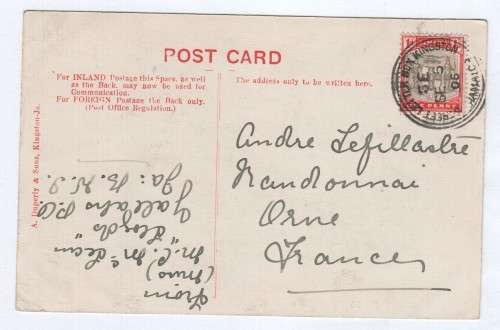 POST CARD
For INLAND Postage this Space, as well
as the Back, may now be used for
Communication.
For FOREIGN Postage the Back only.
(Post Office Regulation.)
The address only to be written here.
A. Duperly & Sons, Kingston-Ja.
From
M. C. McLean
"Lloyds"
Yallahs P.O.
Ja: B.W.I.
Andre Lefillastre
Randonnai
Orne
France
KINGSTON
JAMAICA
PENNY